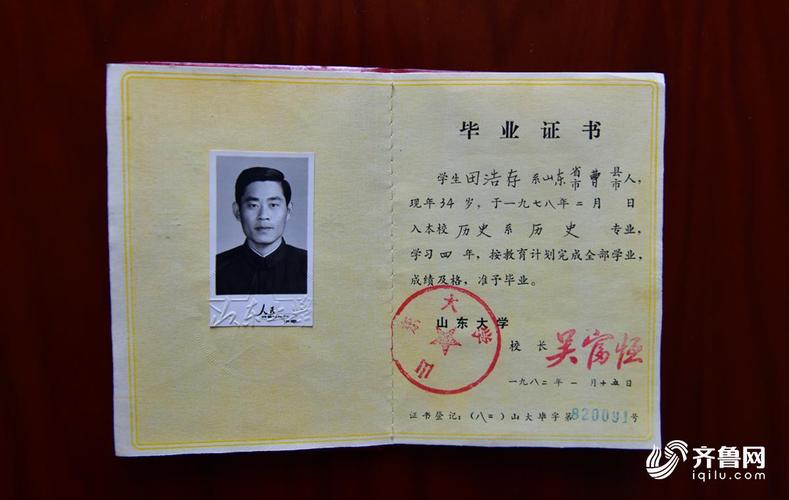 毕业证书
学生田浩存系山东省市曹县市人,
现年34岁,于一九七八年二月 日
入本校历史系历史专业,
学习四年,按教育计划完成全部学业,
成绩及格,准予毕业。
山东大学
山东大学
校长 吴富恒
一九八二年一月十五日
证书登记:(八二)山大毕字第820091号
齐鲁网
iqilu.com